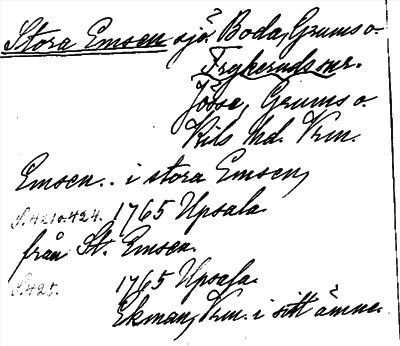 Stora Emsen sjö. Boda, Grums o.
Frykeruds snr.
Jösse, Grums o.
Kils hd. Vrm.
Emsen.. i stora Emsen,
S.421o.424. 1765 Upsala
från St. Emsen.
S.425. 1765 Upsala.
Ekman, Vrm. i sitt ämne.